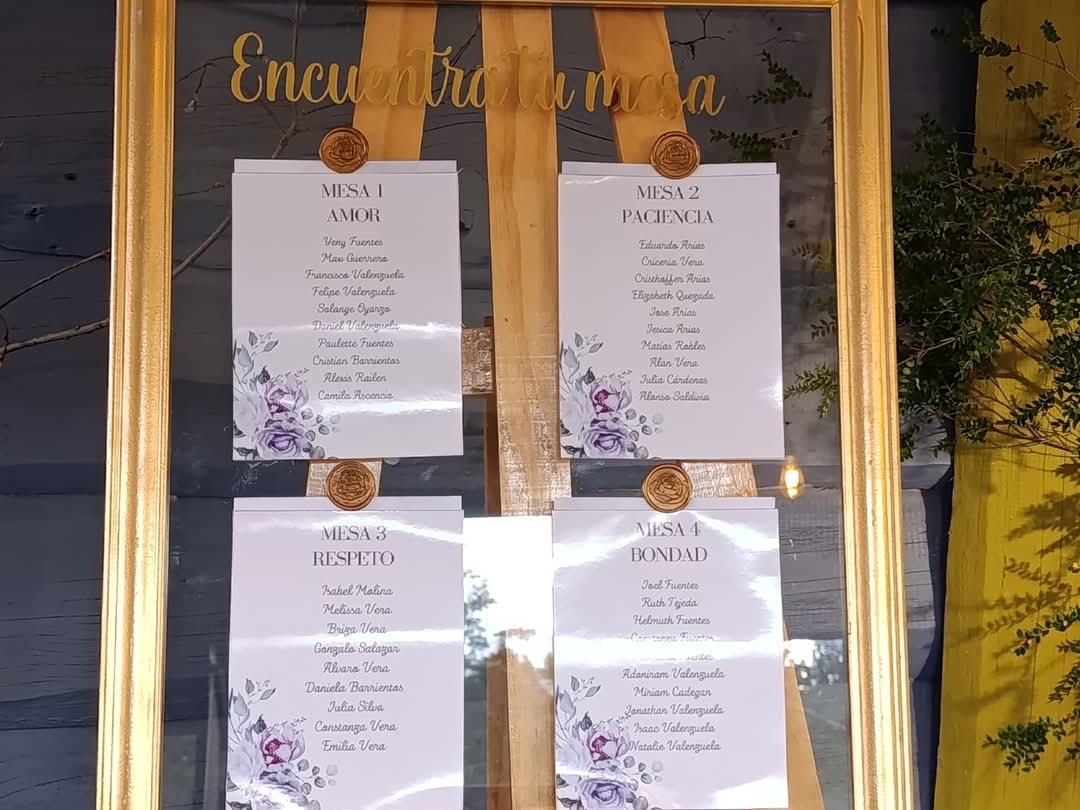 Encuentra tu mesa
MESA 1
AMOR
Yeny Fuentes
Max Guerrero
Francisco Valenzuela
Felipe Valenzuela
Solange Oyarzo
Daniel Valenzuela
Paulette Fuentes
Cristian Barrientos
Alexis Railen
Camila Ascencio
MESA 2
PACIENCIA
Eduardo Arias
Criceria Vera
Cristhoffer Arias
Elizabeth Quezada
Jose Arias
Jesica Arias
Matias Robles
Alan Vera
Julia Cárdenas
Alonso Saldivia
MESA 3
RESPETO
Isabel Molina
Melissa Vera
Briza Vera
Gonzalo Salazar
Alvaro Vera
Daniela Barrientos
Julia Silva
Constanza Vera
Emilia Vera
MESA 4
BONDAD
Joel Fuentes
Ruth Tejeda
Helmuth Fuentes
Constanza Fuentes
Fuentes
Adoniram Valenzuela
Miriam Cadegan
Jonathan Valenzuela
Isaac Valenzuela
Natalie Valenzuela